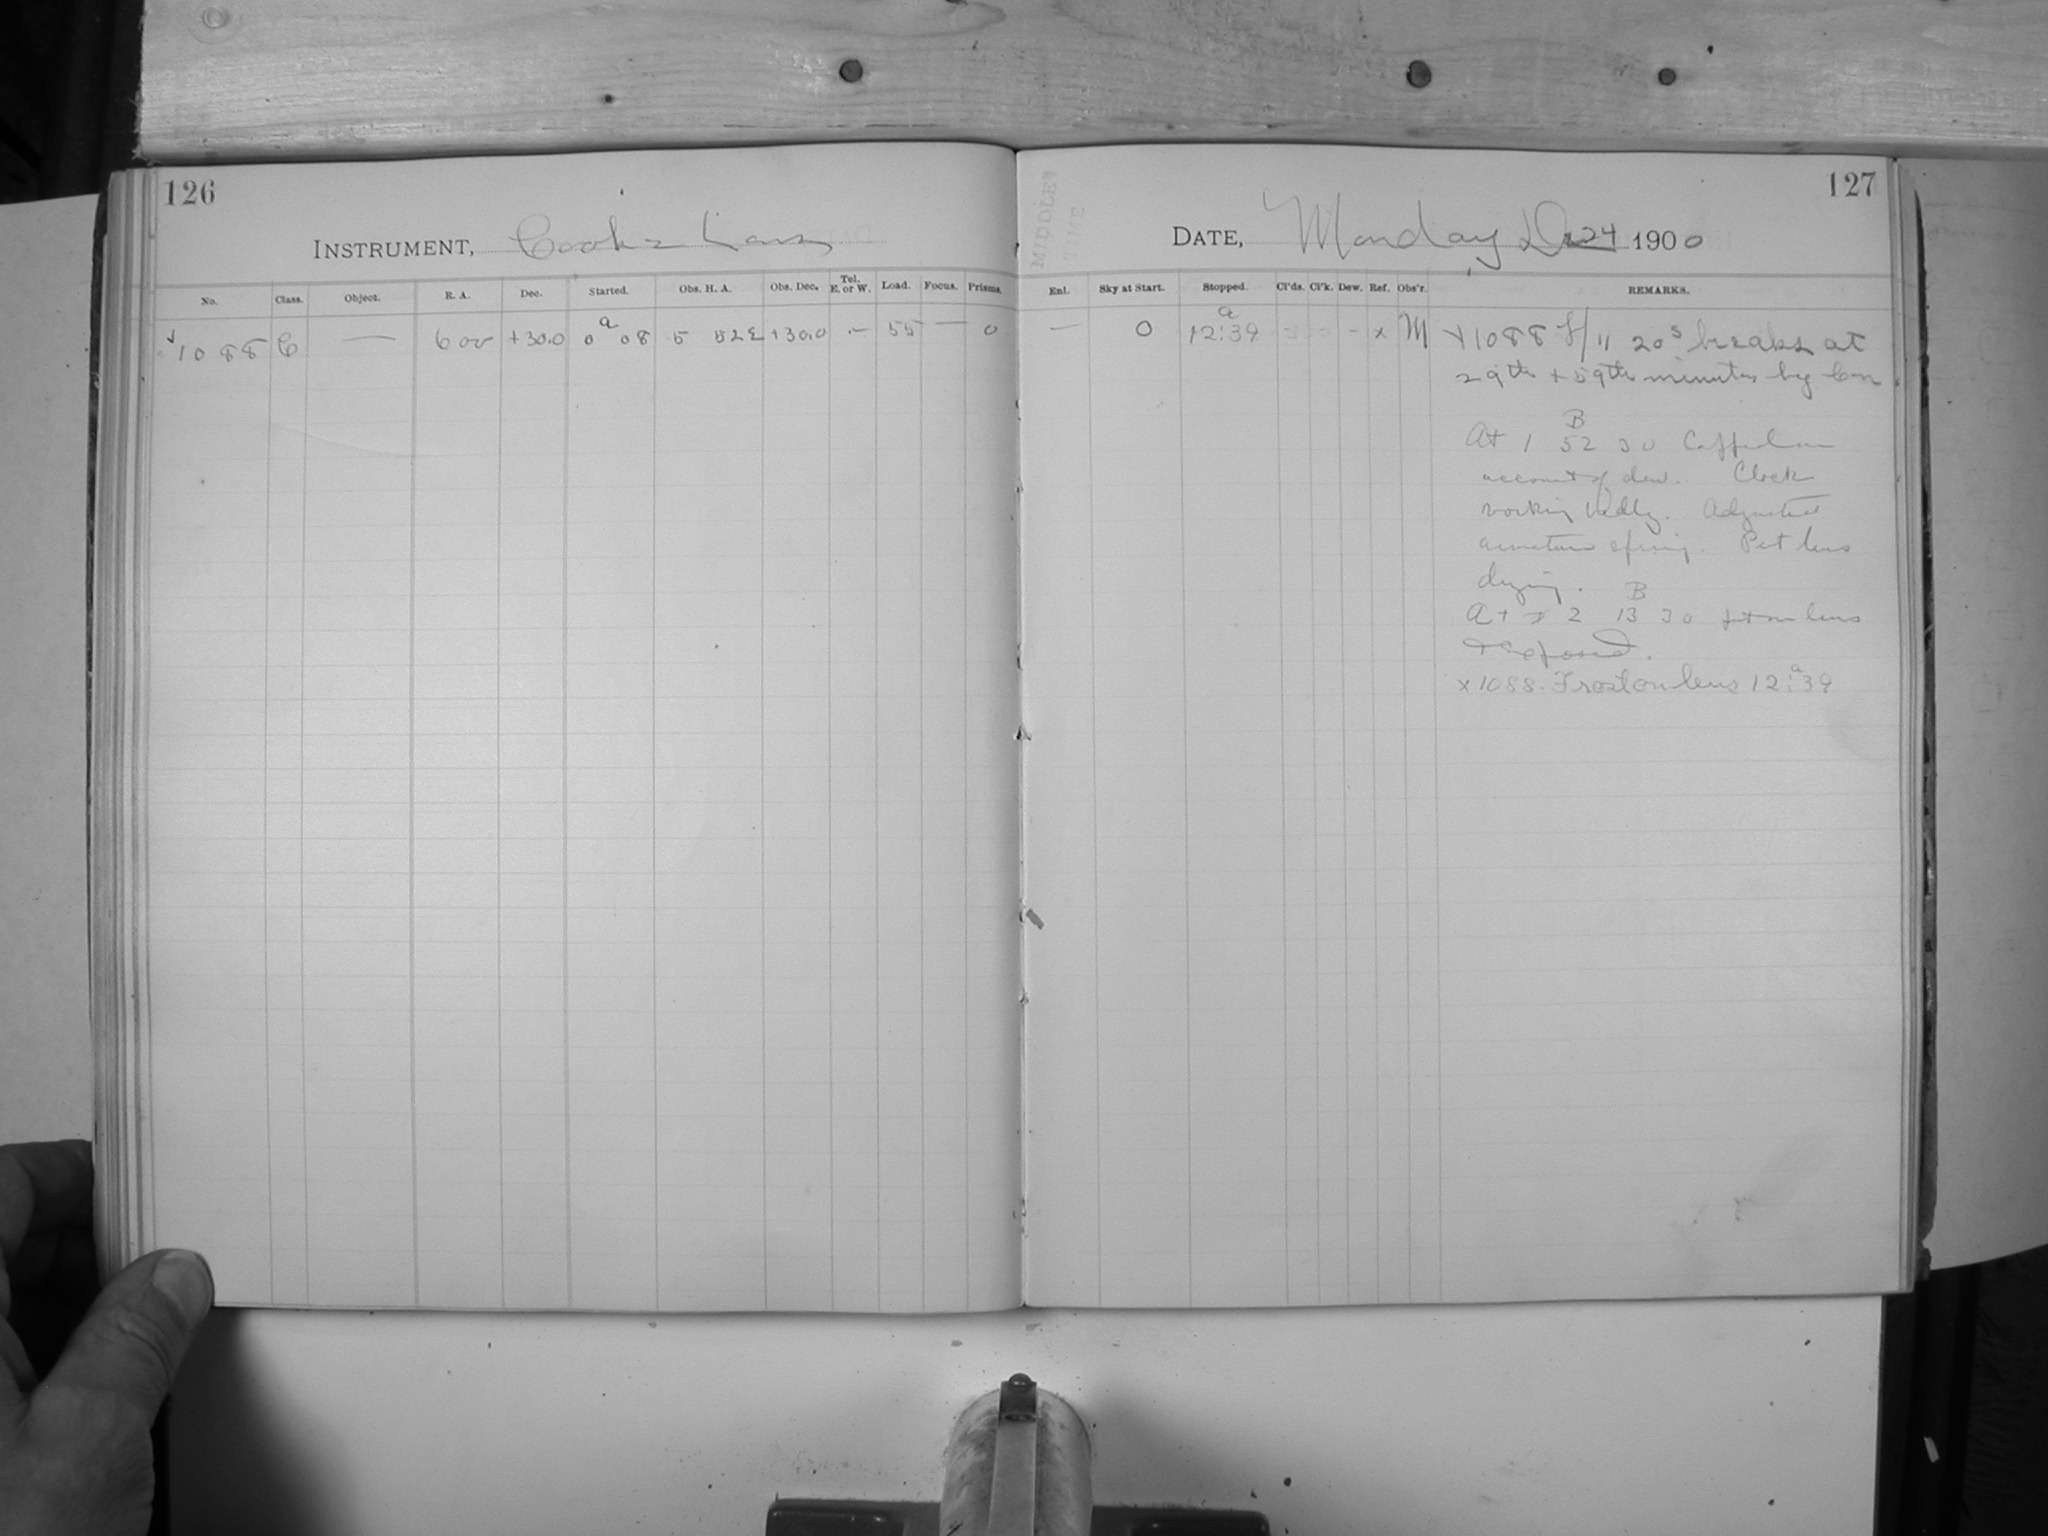 126
127
INSTRUMENT, Cooke Lens
DATE, Monday Dec 24 1900
No. Class. Object. R. A. Dec. Started. Obs. H. A. Obs. Dec. Tel. E. or W. Load. Focus. Prisms.
Enl. Sky at Start. Stopped. Cl'ds. Cl'k. Dew. Ref. Obs'r. REMARKS.
1088 C — 6 00 +30.0 0 a 08 5 52 E +30.0 — 55 — 0
— 0 12:39 a - x M
x1088 20s breaks at
29th + 59th minutes by Con
B
At 1 52 30 Capped on
account of dew. Clock
working badly. Adjusted
armature spring. Put lens
drying.
B
At 2 13 30 put on lens
+ exposed.
x1088. Frost on lens 12:39 a
MIDDLE